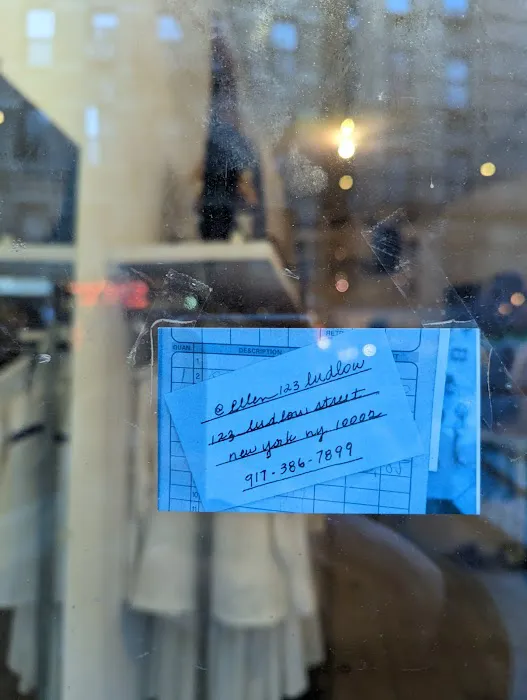 RETA
QUAN. DESCRIPTION
1
1 2
@ellen 123 ludlow
123 ludlow street
new york ny 10002
917-386-7899